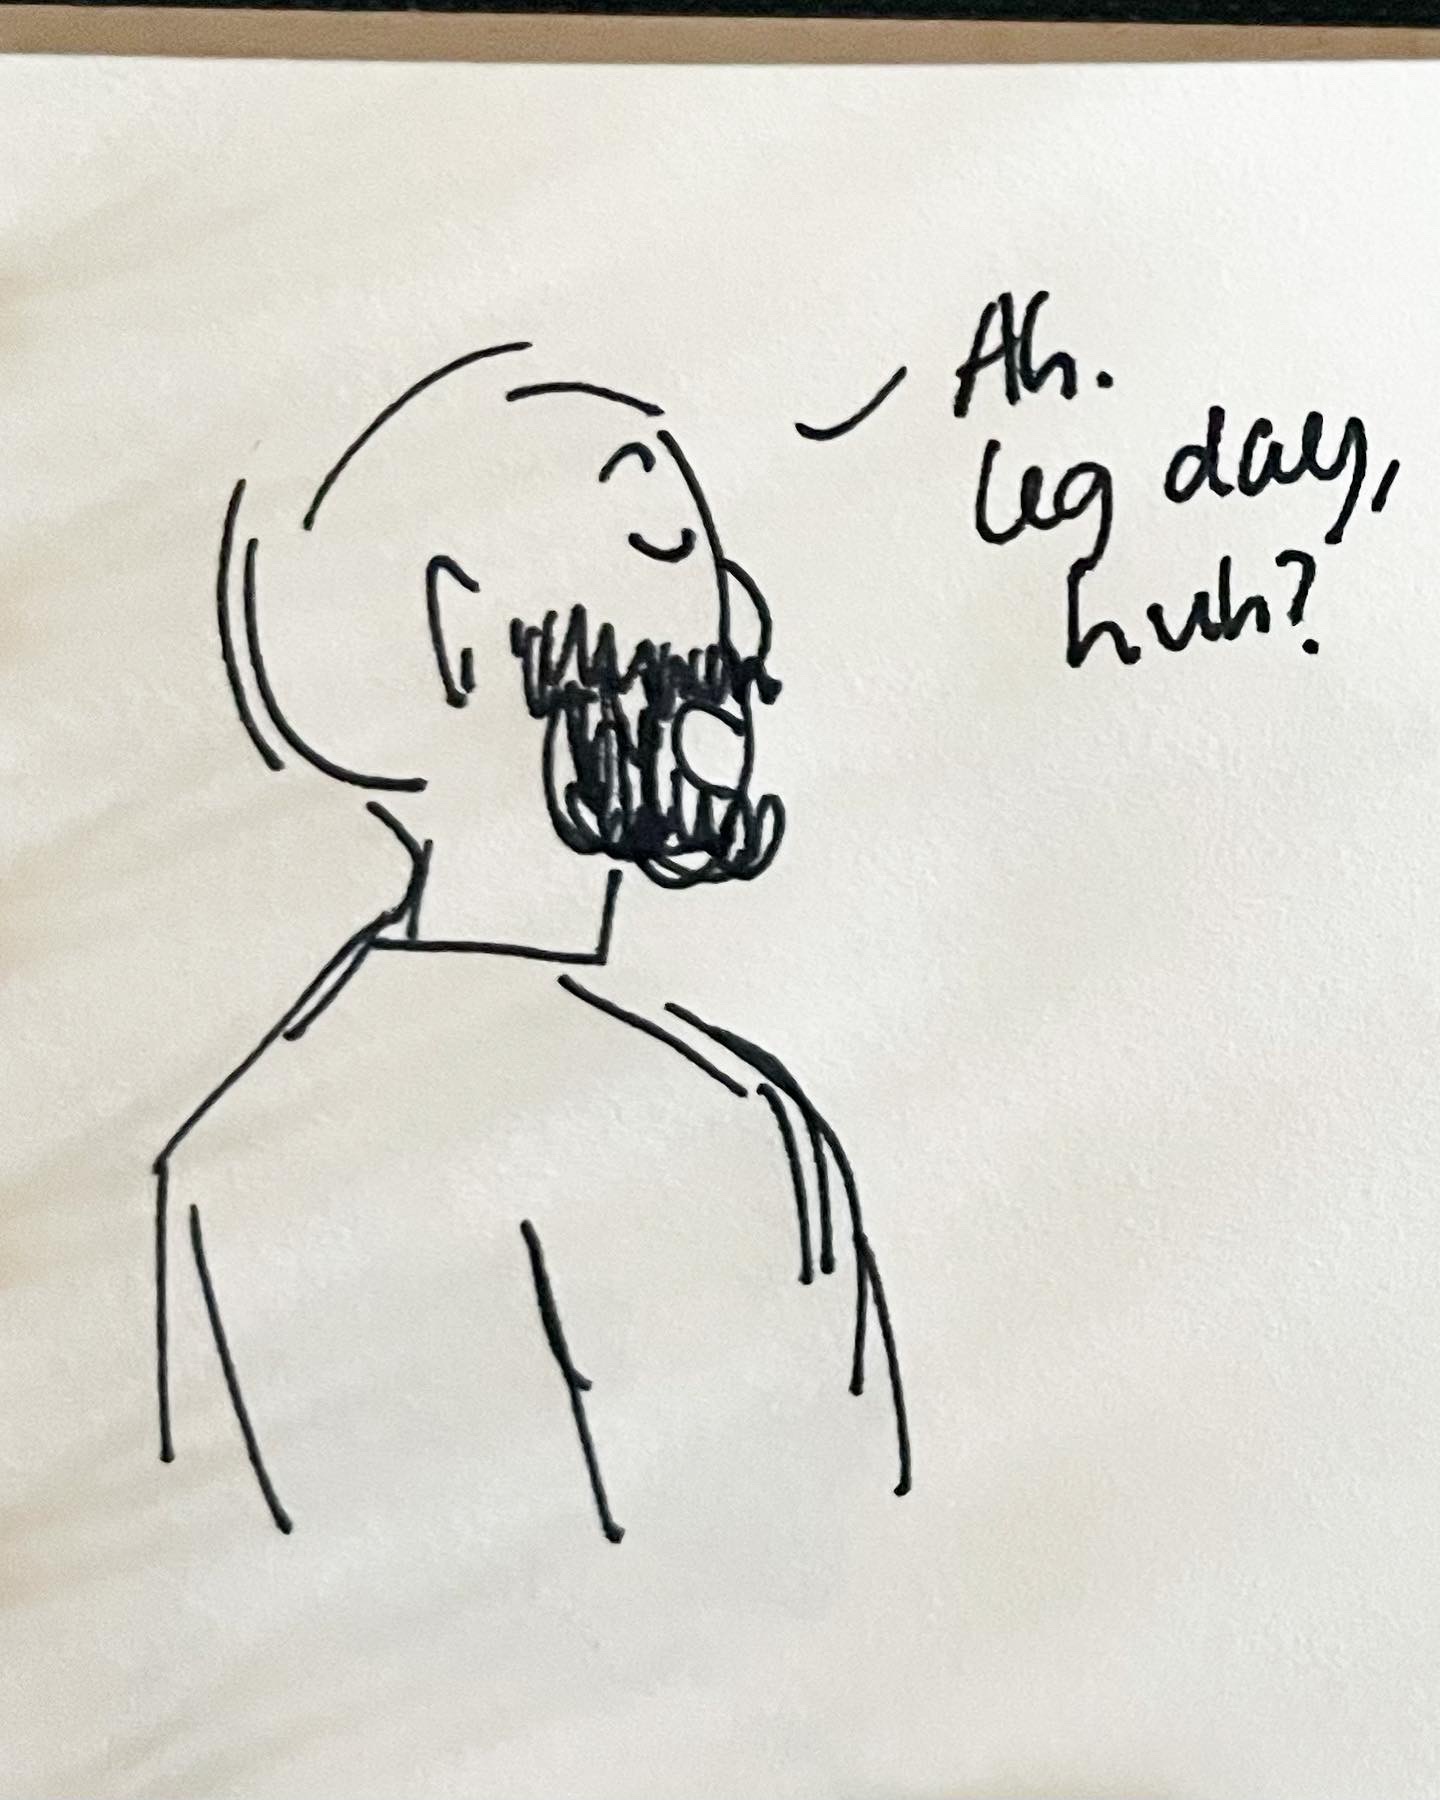 Ah.
leg day,
huh?